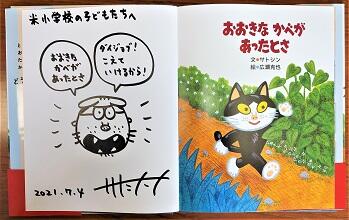 米小学校の子どもたちへ
おおきな
かべが
あったとさ
ダイジョブ!
こえて
いけるから!
2021.7.4
サトシン
おおきな かべが
あったとさ
文●サトシン
絵●広瀬克也